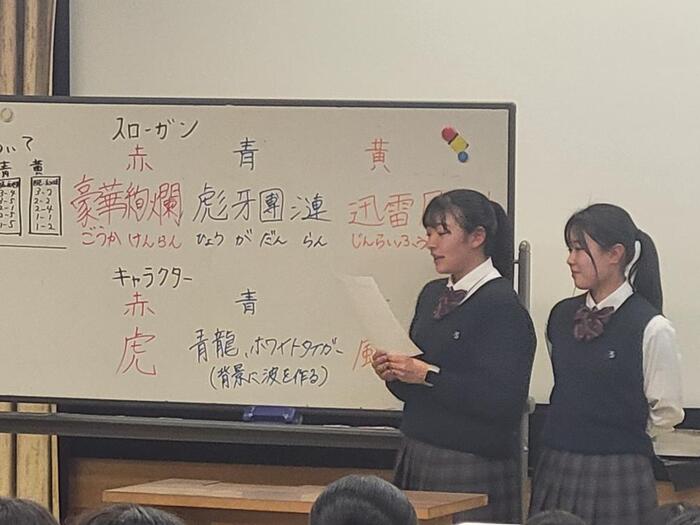 スローガン
いて
赤 青 黄
青 黄
豪華絢爛 彪牙團漣 迅雷
ごうか けんらん ひょう が だん らん じんらいふう
3-2
2-2
2-4
1-1
1-2
キャラクター
赤 青
虎 青龍、ホワイトタイガー
(背景に波を作る)